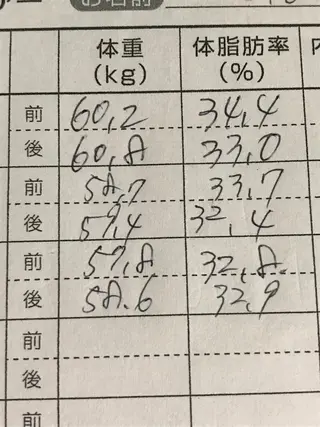 お名前
体重 体脂肪率
(kg) (%)
前 60.2 34.4
後 60.8 33.0
前 58.7 33.7
後 59.4 32.4
前 59.8 32.8.
後 58.6 32.9
前
後
前